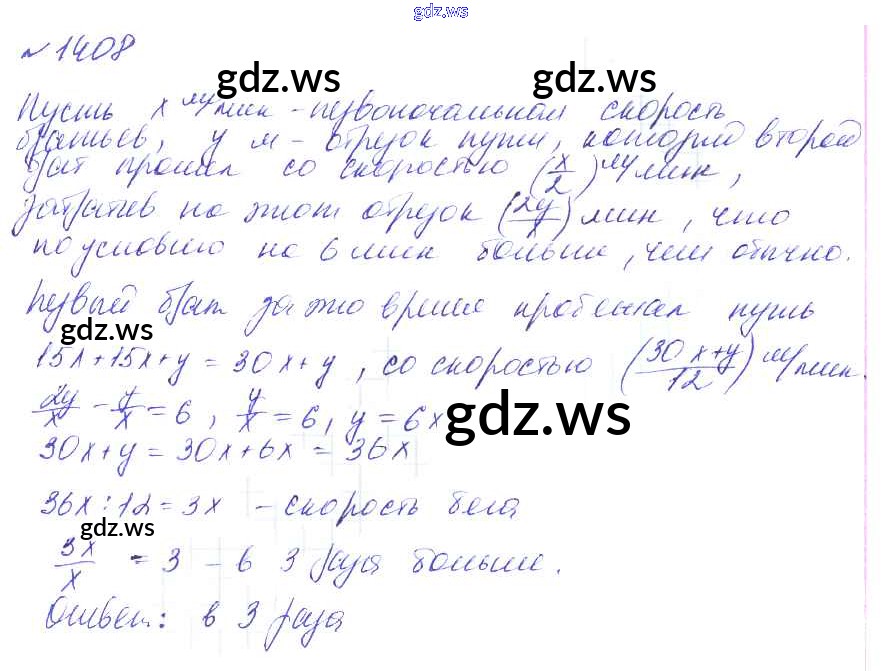 gdz.ws
№ 1408
gdz.ws gdz.ws
Пусть x м/мин - первоначальная скорость
братьев, y м - отрезок пути, который второй
брат прошел со скоростью (x/2) м/мин,
затратив на этот отрезок (2y/x) мин, что
по условию на 6 мин больше, чем обычно.
Первый брат за это время пробежал путь
gdz.ws
15x + 15x + y = 30x + y, со скоростью ((30x+y)/12) м/мин.
2y/x - y/x = 6, y/x = 6, y = 6x
gdz.ws
30x + y = 30x + 6x = 36x
36x : 12 = 3x - скорость бега
gdz.ws
3x/x = 3 - в 3 раза больше.
Ответ: в 3 раза